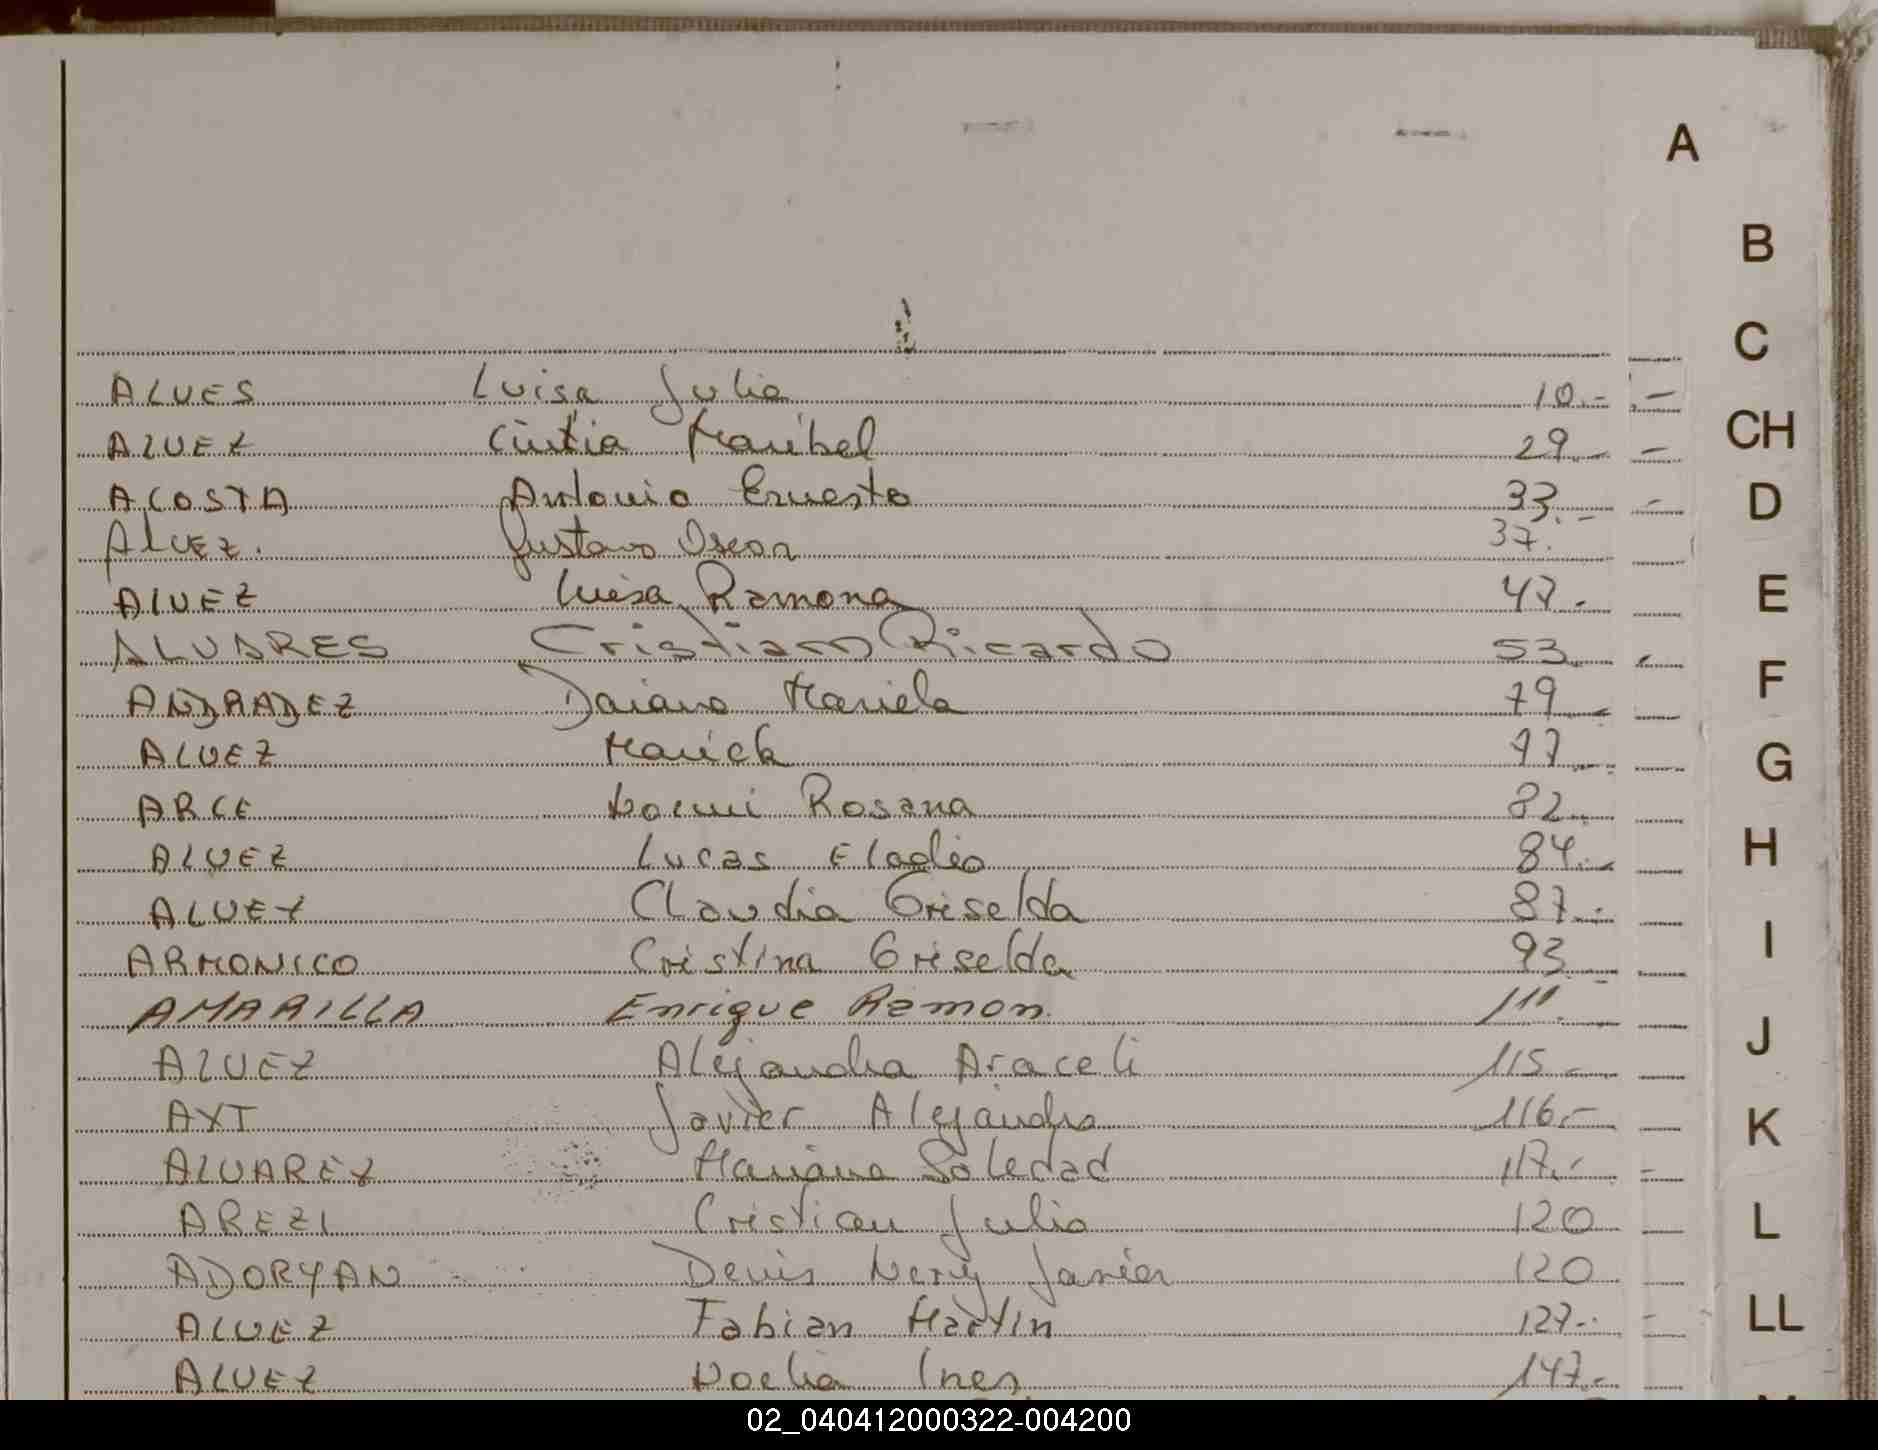 A
B
C
ALVES Luisa Julia 10.- -
CH
ALVEZ Cintia Maribel 29.- -
ACOSTA Antonio Ernesto 33.- -
D
ALVEZ. Gustavo Oscar 37.
ALVEZ Luisa Ramona 47.-
E
ALVARES Cristiam Ricardo 53
ANDRADEZ Daiana Mariela 79
F
ALVEZ 77
G
ARCE Noemi Rosana 82
ALVEZ Lucas Eladio 84.-
H
ALVEZ Claudia Griselda 87.-
ARMONICO Cristina Griselda 93
I
AMARILLA Enrique Ramon. 111.
ALVEZ Alejandra Araceli 115.-
J
AXT Javier Alejandro 116.-
K
ALVAREZ Mariana Soledad 117.-
AREZI Cristian Julio 120
L
ADORYAN Denis Nery Javier 120
ALVEZ Fabian Martin 127.-
LL
ALVEZ Noelia Ines 147.-
02_040412000322-004200